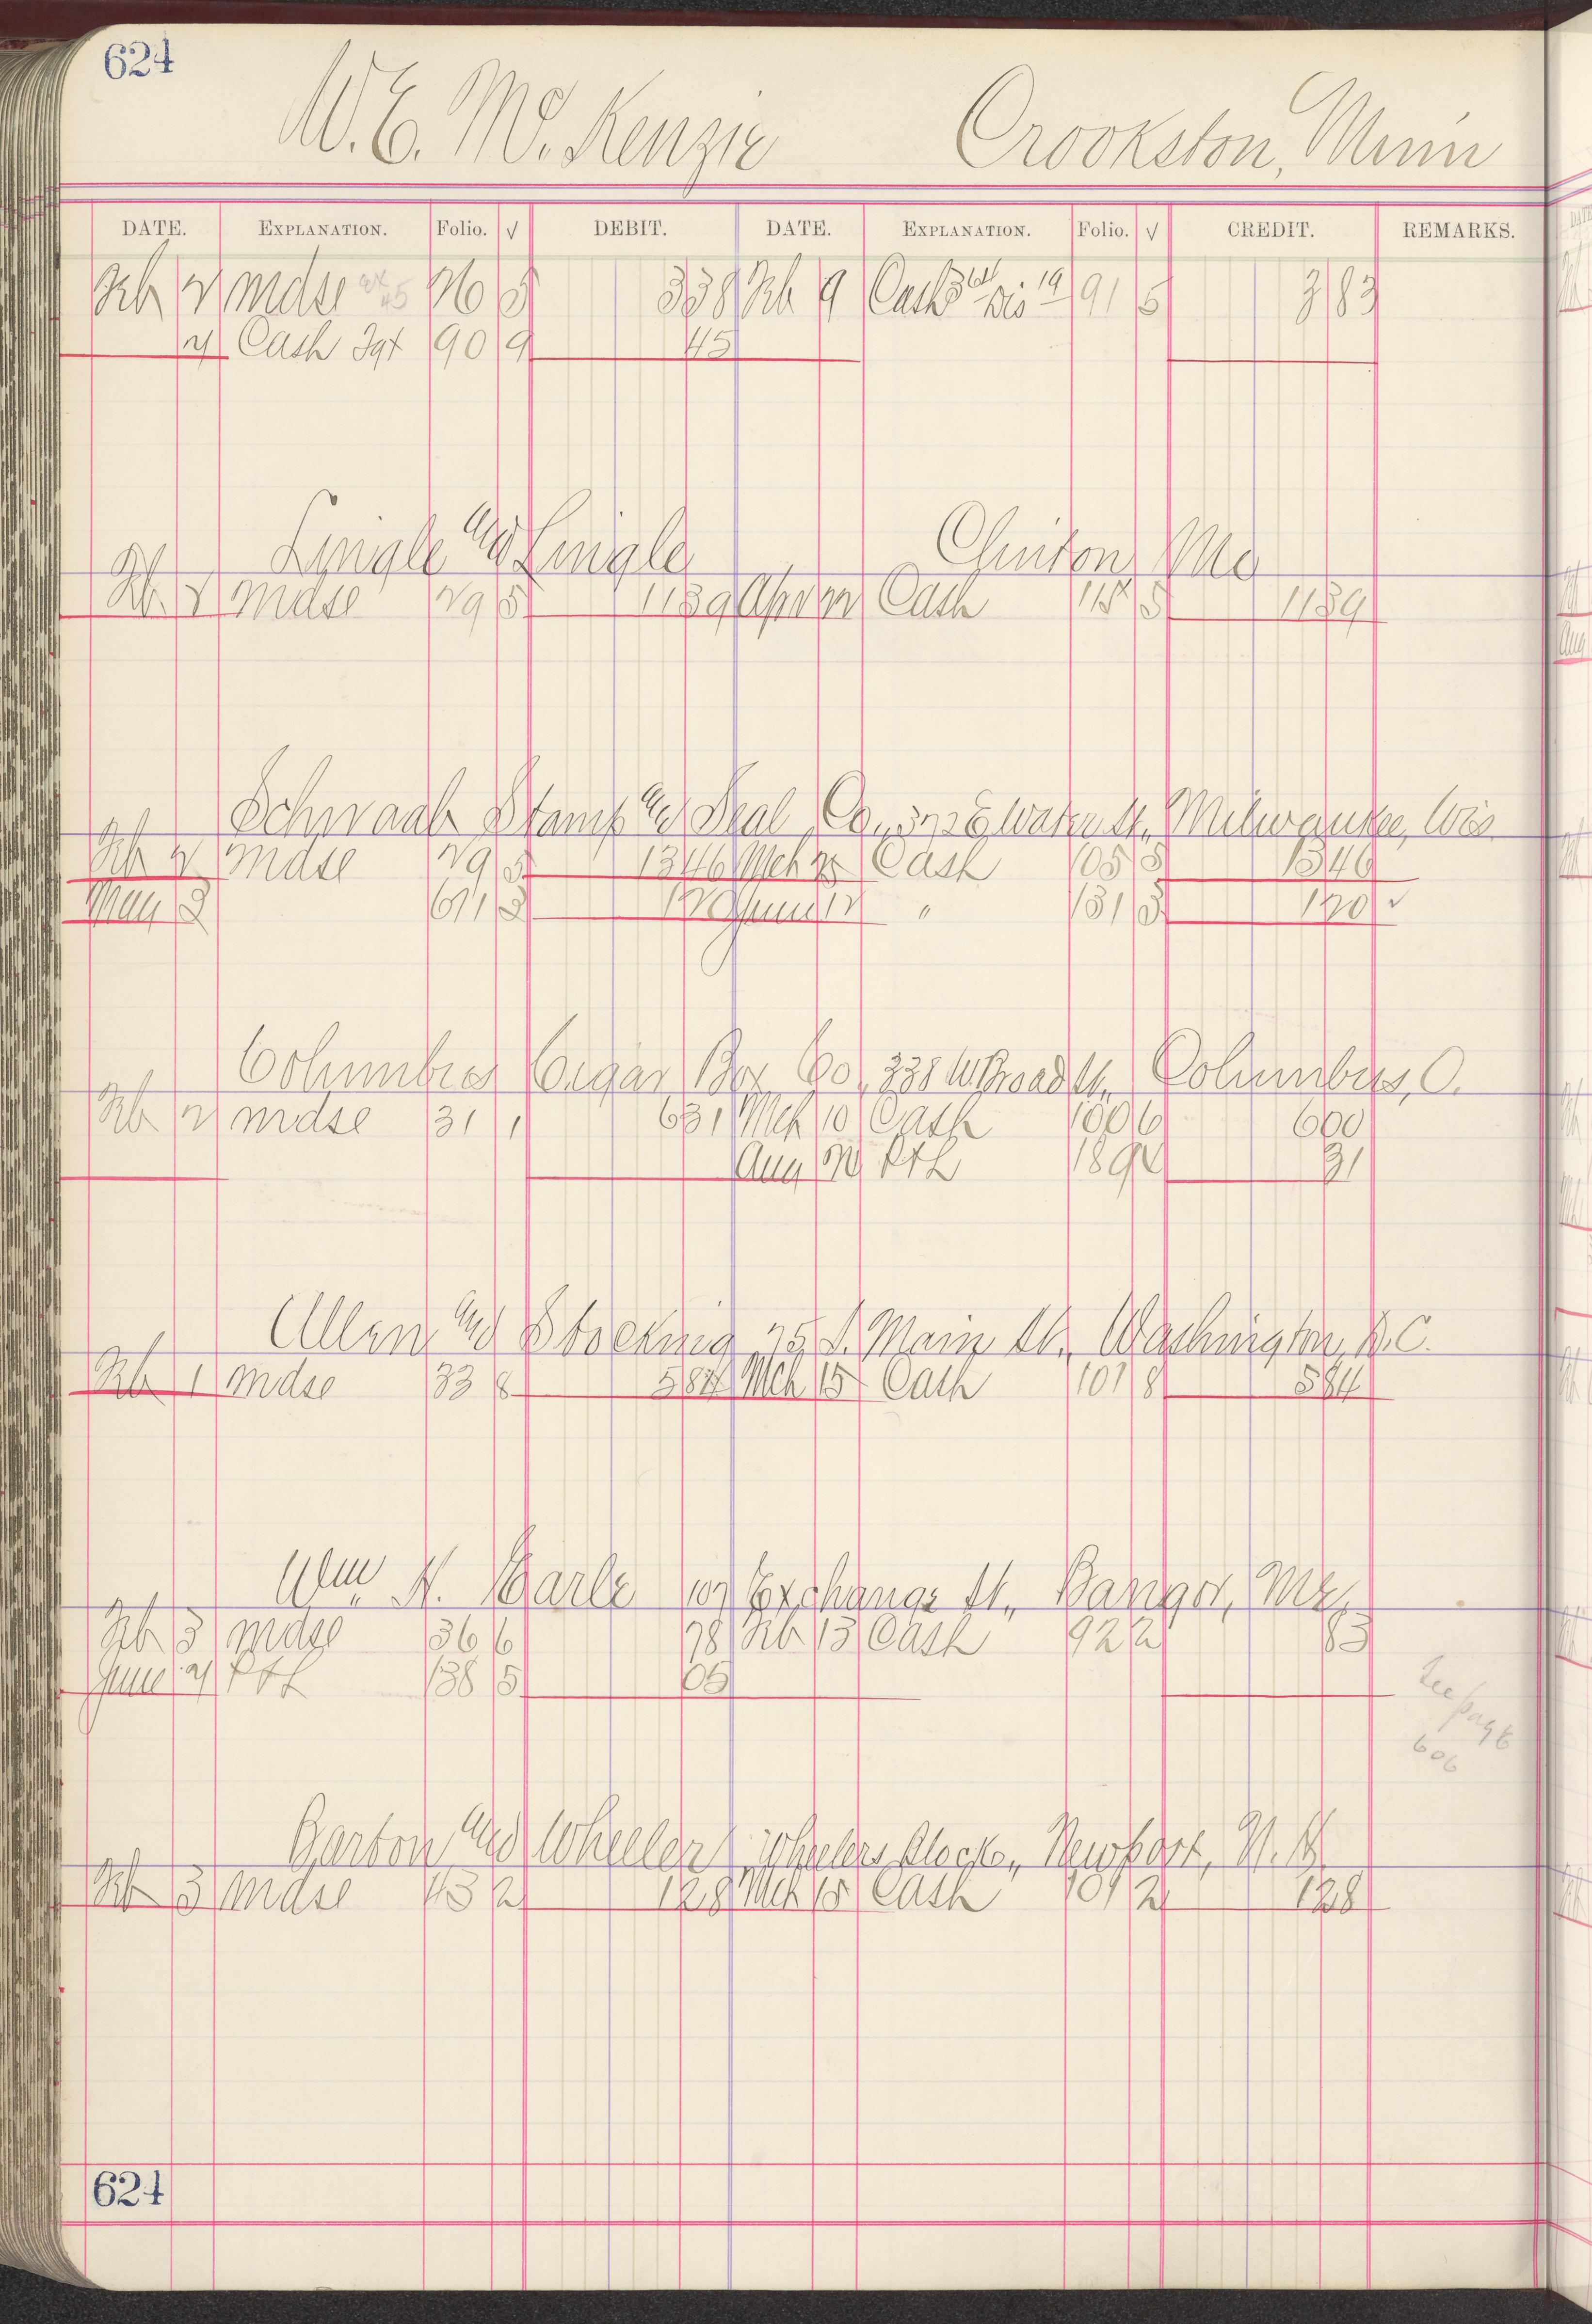 624
W. E. McKenzie Crookston, Minn
DATE. EXPLANATION. Folio. √ DEBIT. DATE. EXPLANATION. Folio. √ CREDIT. REMARKS.
Feb 2 mdse 26 5 338 Feb 9 Cash Dis 19 91 5 383
Cash Fgt 90 9 45
Lingle and Lingle Clinton, Mo
Feb 2 mdse 29 5 1189 Apr 22 Cash 115 5 1189
Schwaab Stamp and Seal Co., E Water St., Milwaukee, Wis.
Feb 2 mdse 29 5 1346 Mch 25 Cash 105 5 1346
May 3 61 3 120 June 12 " 131 3 120 √
Columbia Cigar Box Co., 338 W. Broad St., Columbus, O.
Feb 2 mdse 31 1 631 Mch 10 Cash 100 6 600
Aug P&L 189 31
Allen and Stocking 25 S. Main St., Washington, D.C.
Feb 1 mdse 33 8 584 Mch 15 Cash 101 8 584
Wm. N. Earle 107 Exchange St., Bangor, Me.
Feb 3 mdse 36 6 78 Feb 13 Cash 92 2 83
June P&L 138 5 05
See page
606
Barton and Wheeler Wheelers Block., Newport, N. H.
Feb 3 mdse 43 2 128 Mch 15 Cash 101 2 128
624